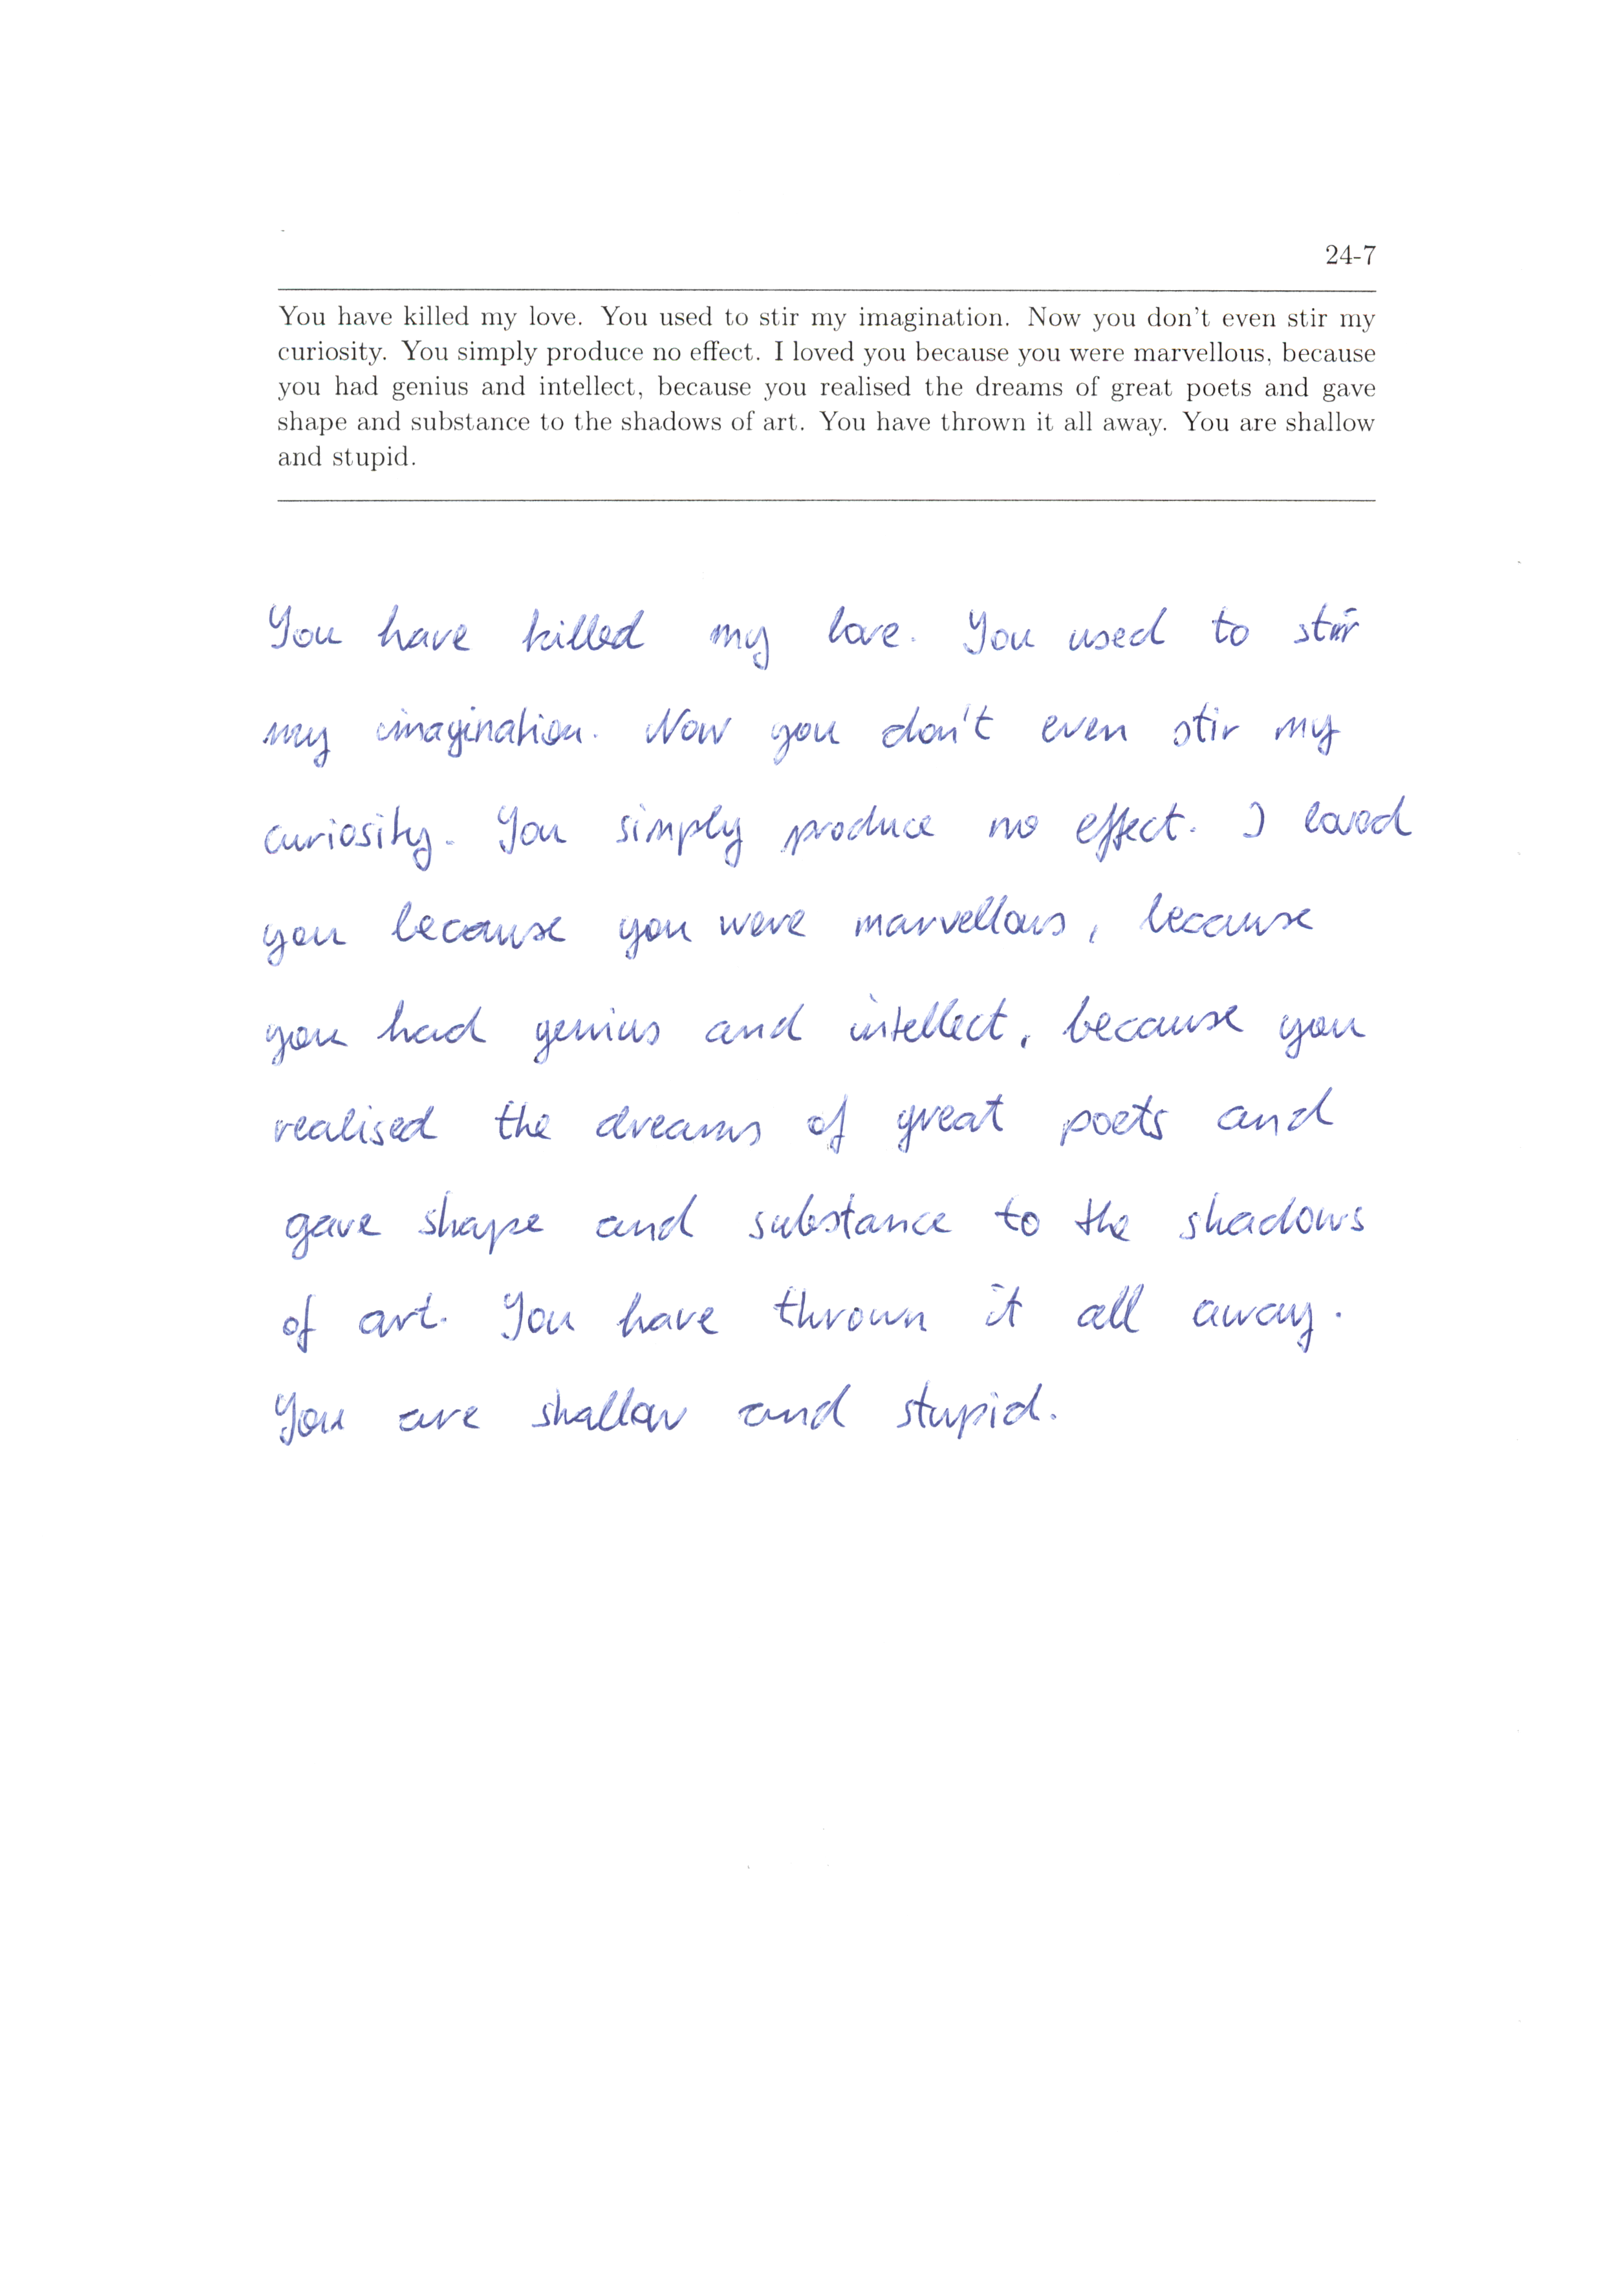 24-7
You have killed my love. You used to stir my imagination. Now you don't even stir my
curiosity. You simply produce no effect. I loved you because you were marvellous, because
you had genius and intellect, because you realised the dreams of great poets and gave
shape and substance to the shadows of art. You have thrown it all away. You are shallow
and stupid.
You have killed my love. You used to stir
my imagination. Now you don't even stir my
curiosity. You simply produce no effect. I loved
you because you were marvellous, because
you had genius and intellect, because you
realised the dreams of great poets and
gave shape and substance to the shadows
of art. You have thrown it all away.
You are shallow and stupid.